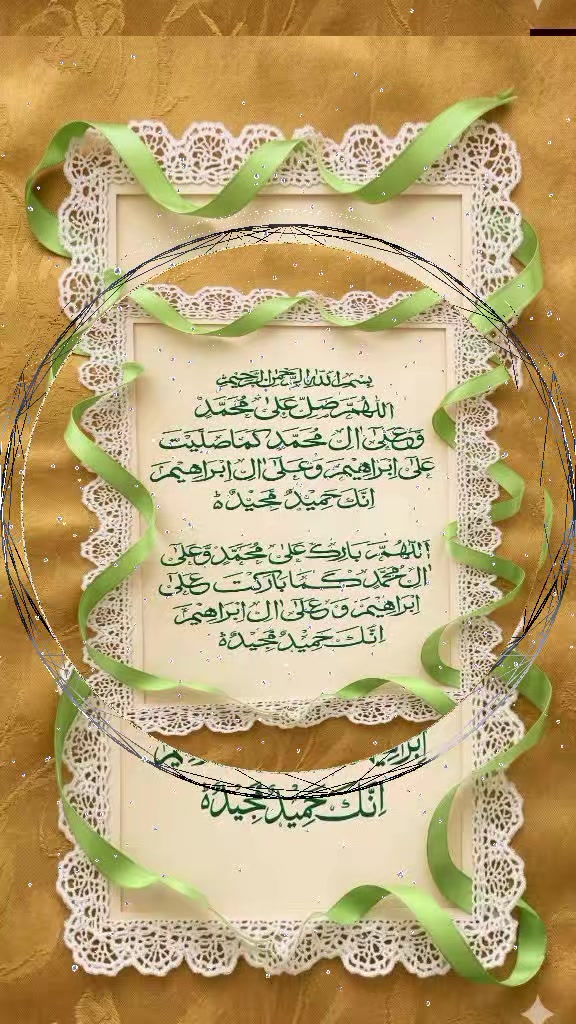 بسم الله الرحمن الرحيم
اللهم صل على محمد
وعلى ال محمد كما صليت
على ابراهيم وعلى ال ابراهيم
انك حميد مجيد ة
اللهم بارك على محمد وعلى
ال محمد كما باركت على
ابراهيم وعلى ال ابراهيم
انك حميد مجيد ة
انك حميد مجيد ة